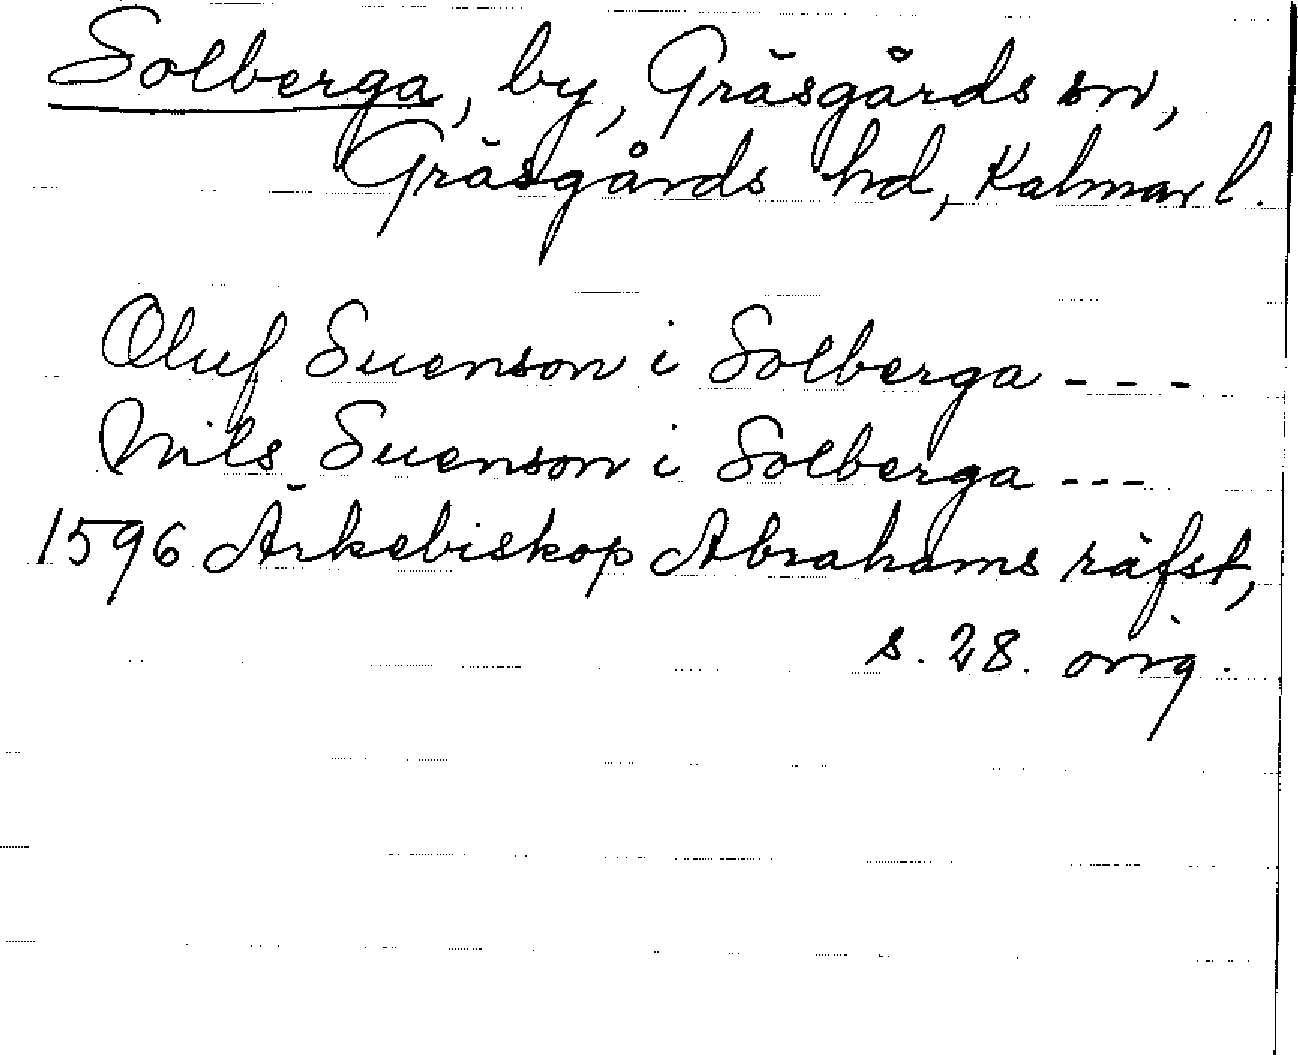 Solberga, by, Gräsgårds sn,
Gräsgårds hd, Kalmar l.
Oluf Suenson i Solberga - - -
Nils Suenson i Solberga - - -
1596 Ärkebiskop Abrahams räfst,
s. 28. orig.